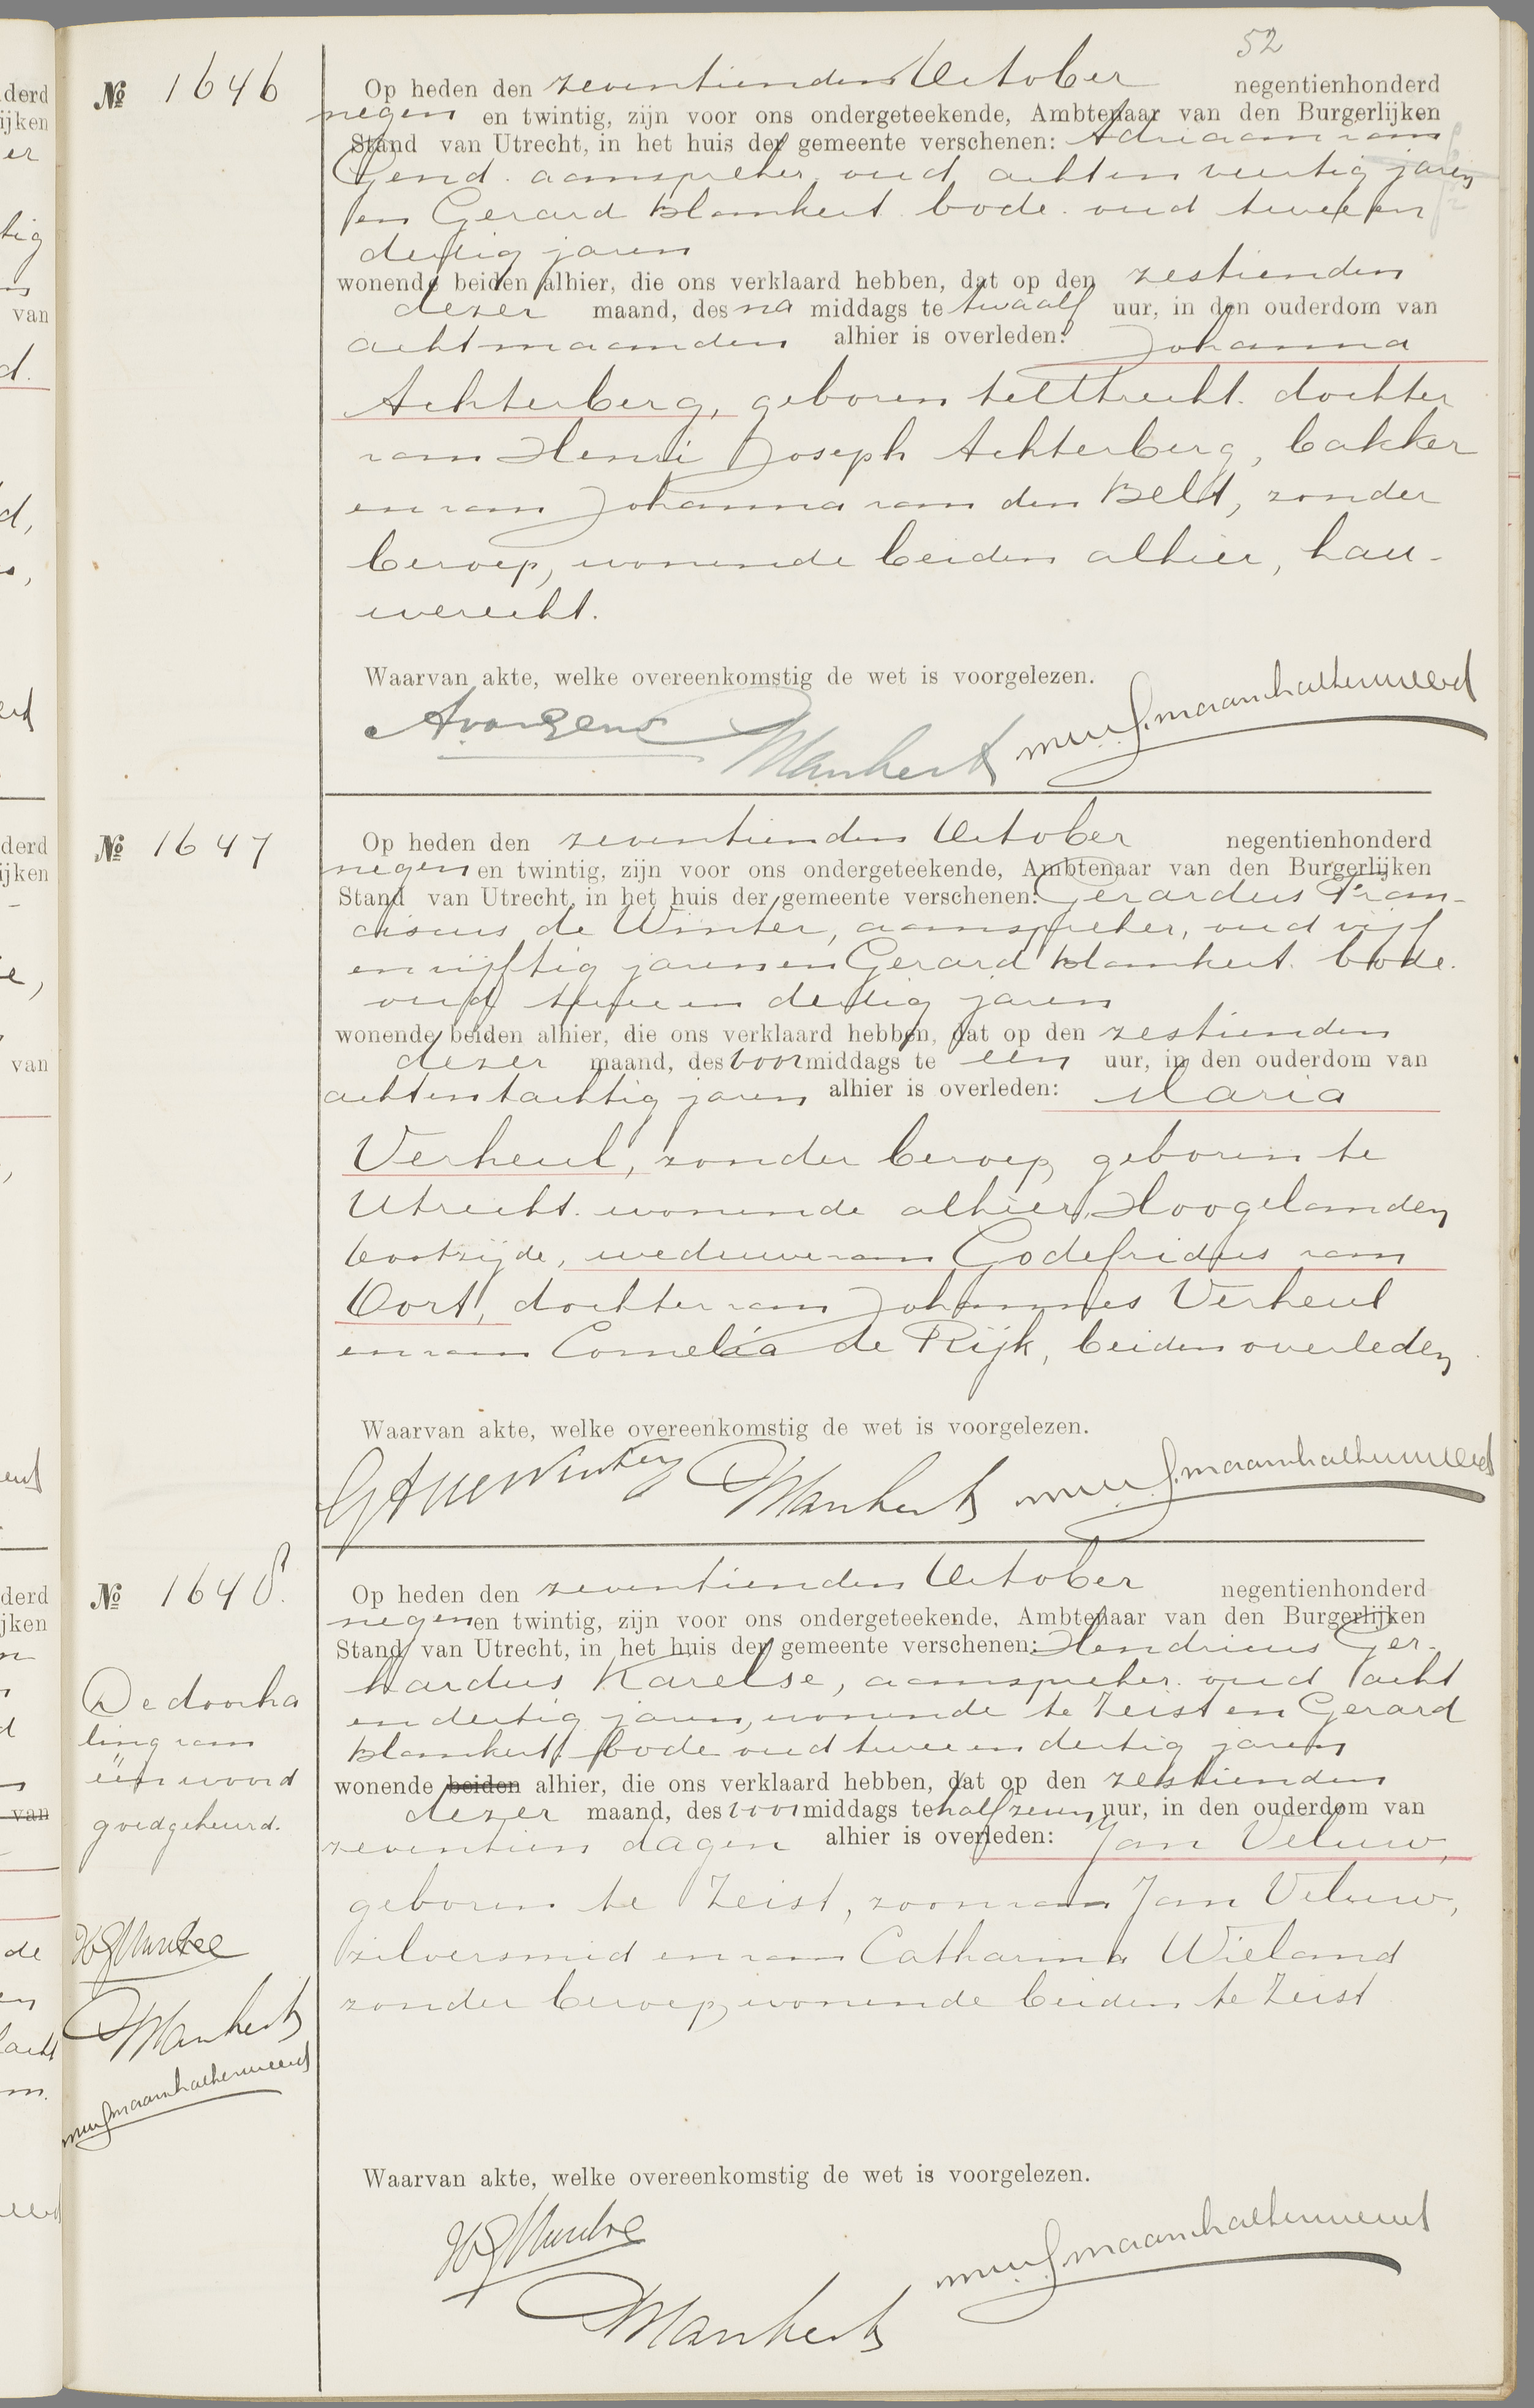 52
№ 1646
Op heden den zeventienden October negentienhonderd
negen en twintig, zijn voor ons ondergeteekende, Ambtenaar van den Burgerlijken
Stand van Utrecht, in het huis der gemeente verschenen: Adriaan van
Gend. aanspreker oud achtenveertig jaren
en Gerard Blankert bode oud twee en
dertig jaren
wonende beiden alhier, die ons verklaard hebben, dat op den zestienden
dezer maand, des na middags te twaalf uur, in den ouderdom van
acht maanden alhier is overleden: Johanna
Achterberg, geboren te Utrecht. dochter
van Henri Joseph Achterberg, bakker
en van Johanna van den Belt, zonder
beroep, wonende beiden alhier, hau-
werecht.
Waarvan akte, welke overeenkomstig de wet is voorgelezen.
AvanGend
Blankert
№ 1647
Op heden den zeventienden October negentienhonderd
negen en twintig, zijn voor ons ondergeteekende, Ambtenaar van den Burgerlijken
Stand van Utrecht, in het huis der gemeente verschenen: Gerardus Fran-
ciscus de Winter, aanspreker, oud vijf
en vijftig jaren en Gerard Blankert. bode.
oud twee en dertig jaren
wonende beiden alhier, die ons verklaard hebben, dat op den zestienden
dezer maand, des voormiddags te een uur, in den ouderdom van
achtentachtig jaren alhier is overleden: Maria
Verheul, zonder beroep, geboren te
Utrecht. wonende alhier, Hoogelanden
Oostzijde, weduwe van Godefridus van
Oort, dochter van Johannes Verheul
en van Cornelia de Rijk, beiden overleden
Waarvan akte, welke overeenkomstig de wet is voorgelezen.
Blankert
№ 1648.
Op heden den zeventienden October negentienhonderd
negen en twintig, zijn voor ons ondergeteekende, Ambtenaar van den Burgerlijken
Stand van Utrecht, in het huis der gemeente verschenen: Hendricus Ger-
hardus Karelse, aanspreker oud acht
en dertig jaren, wonende te Zeist en Gerard
Blankert bode oud twee en dertig jaren
wonende beiden alhier, die ons verklaard hebben, dat op den zestienden
dezer maand, des voormiddags te half zeven uur, in den ouderdom van
zeventien dagen alhier is overleden: Jan Veluw,
geboren te Zeist, zoon van Jan Veluw,
zilversmid en van Catharina Wieland
zonder beroep, wonende beiden te Zeist
De doorha
ling van
één woord
goedgekeurd.
Blankert
Waarvan akte, welke overeenkomstig de wet is voorgelezen.
Blankert